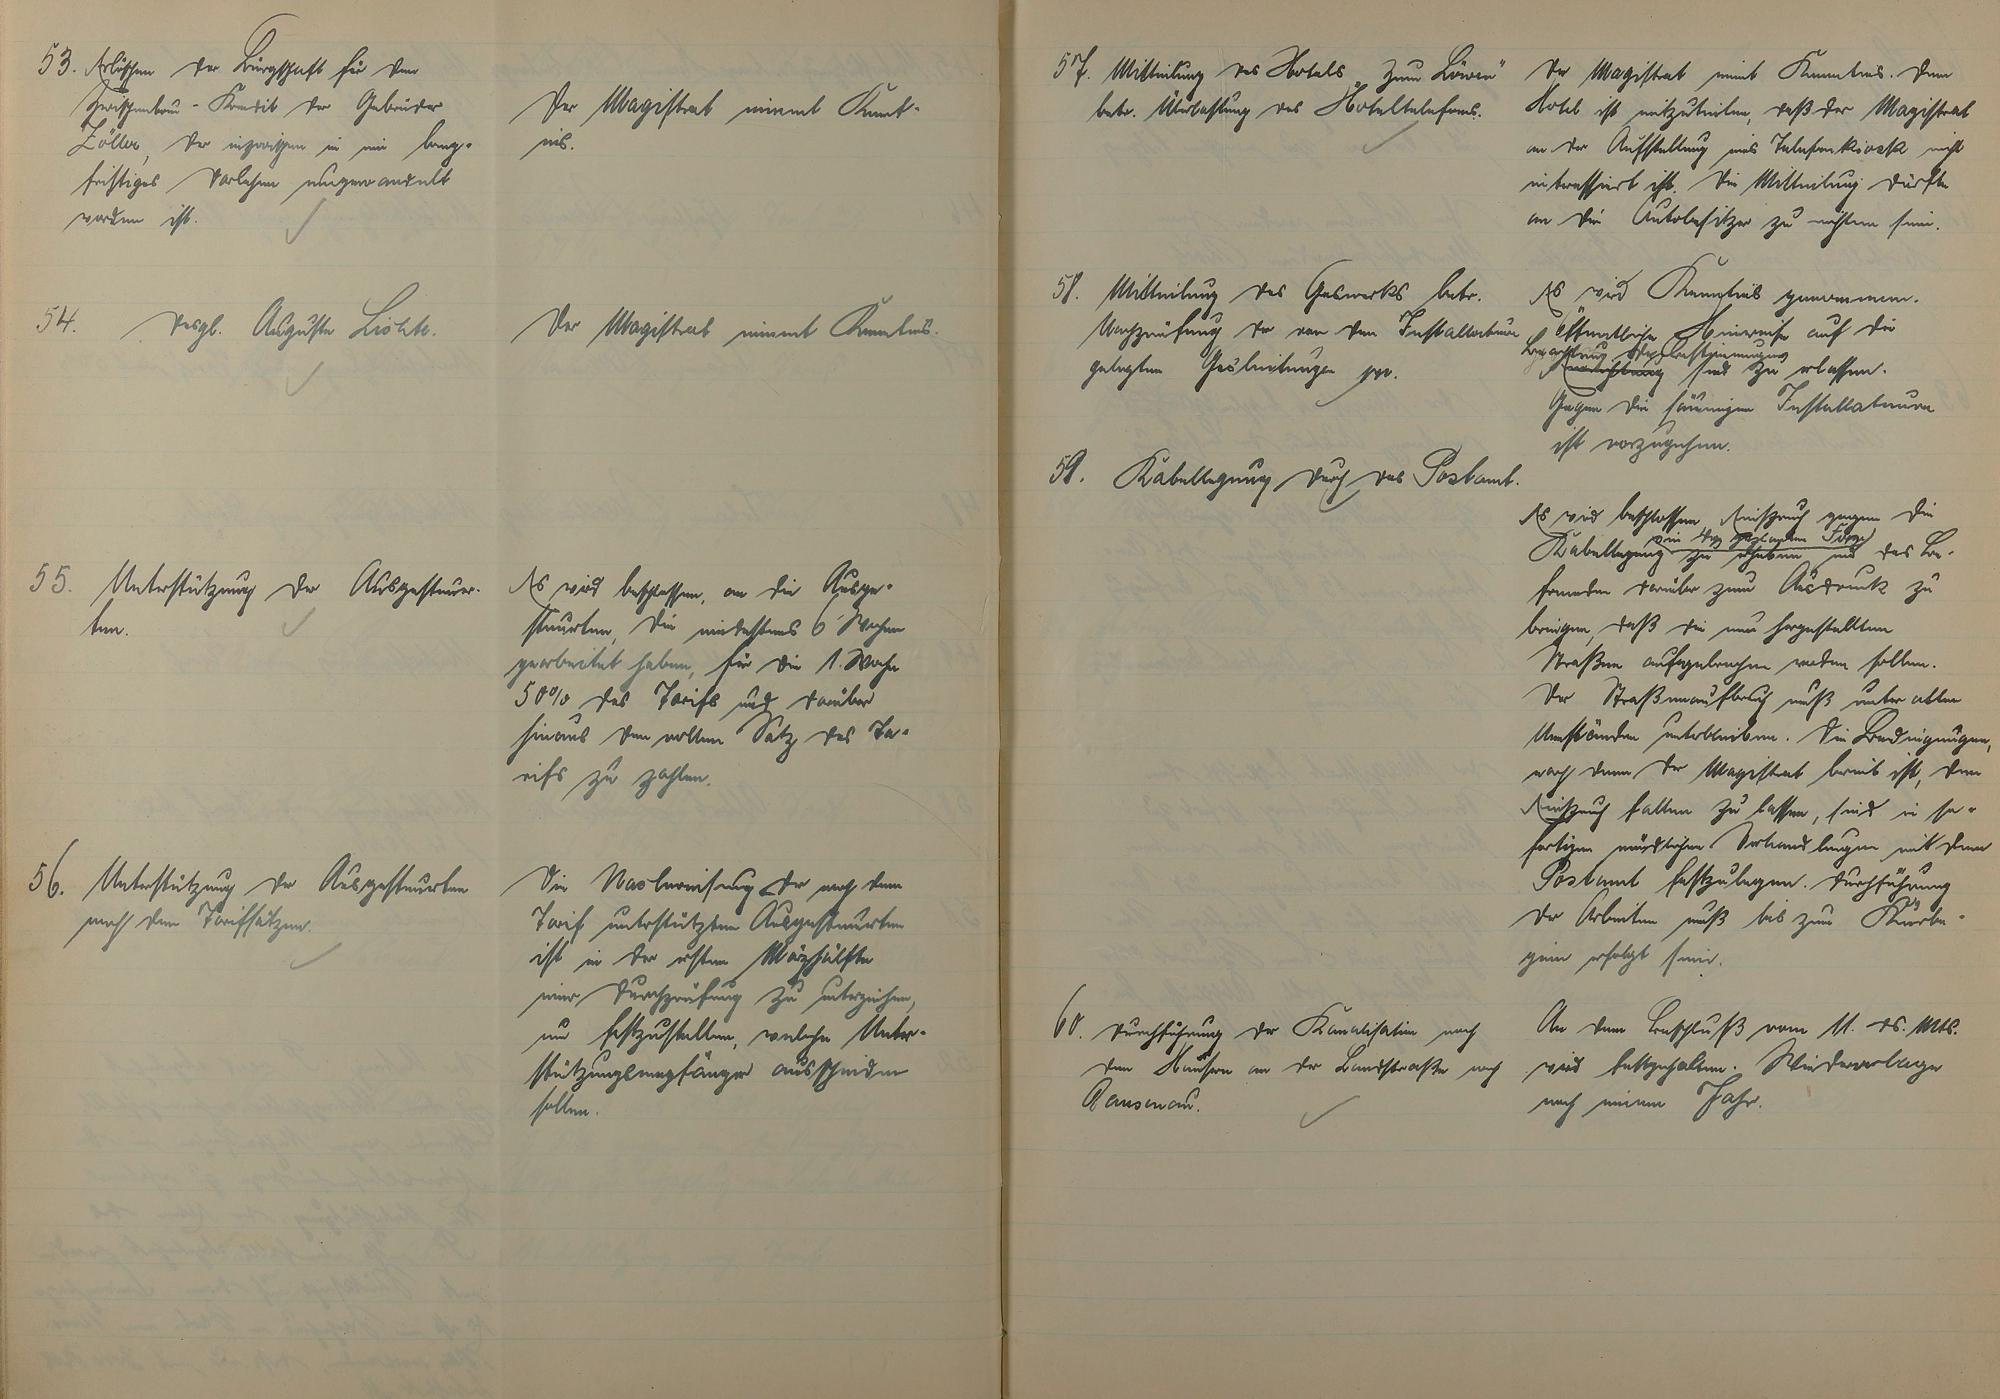 53. Erlöschen der Bürgschaft für den
Zwischenbau-Kredit der Gebrüder
Zöller, der inzwischen in ein lang-
fristiges Darlehen umgewandelt
worden ist.
Der Magistrat nimmt Kennt-
nis.
54. Desgl. Auguste Liohte.
Der Magistrat nimmt Kenntnis.
55. Unterstützung der Ausgesteuer-
ten.
Es wird beschlossen, an die Ausge-
steuerten, die mindestens 6 Wochen
gearbeitet haben, für die 1. Woche
50% des Tarifs und darüber
hinaus den vollen Satz des Ta-
rifs zu zahlen.
56. Unterstützung der Ausgesteuerten
nach den Tarifsätzen.
Die Nachweisung der nach dem
Tarif unterstützten Ausgesteuerten
ist in der ersten Märzhälfte
einer Durchprüfung zu unterziehen,
um festzustellen, welche Unter-
stützungsempfänger ausscheiden
sollen.
57. Mitteilung des Hotels „Zum Löwen"
betr. Überlassung des Hoteltelefons.
Der Magistrat nimmt Kenntnis. Dem
Hotel ist mitzuteilen, daß der Magistrat
an der Aufstellung eines Telefonkiosk nicht
interessiert ist. Die Mitteilung dürfte
an die Autobesitzer zu richten sein.
58. Mitteilung des Gaswerks betr.
Nachprüfung der von den Installateuren
gelegten Gasleitungen pp.
Es wird Kenntnis genommen.
Öffentliche Hinweise auf die
Beachtung der Bestimmungen
sind zu erlassen.
Gegen die säumigen Installateure
ist vorzugehen.
59. Kabellegung durch das Postamt.
Es wird beschlossen, Einspruch gegen die
in der geplanten Form
Kabellegung zu erheben und das Be-
fremden darüber zum Ausdruck zu
bringen, daß die neu hergestellten
Straßen aufgebrochen werden sollen.
Der Straßenaufbruch muß unter allen
Umständen unterbleiben. Die Bedingungen,
nach denen der Magistrat bereit ist, den
Einspruch fallen zu lassen, sind in so-
fortigen mündlichen Verhandlungen mit dem
Postamt festzulegen. Durchführung
der Arbeiten muß bis zum Kurbe-
ginn erfolgt sein.
60. Durchführung der Kanalisation nach
den Häusern an der Landstraße nach
Dausenau.
An dem Beschluß vom 11. ds. Mts.
wird festgehalten. Wiedervorlage
nach einem Jahr.